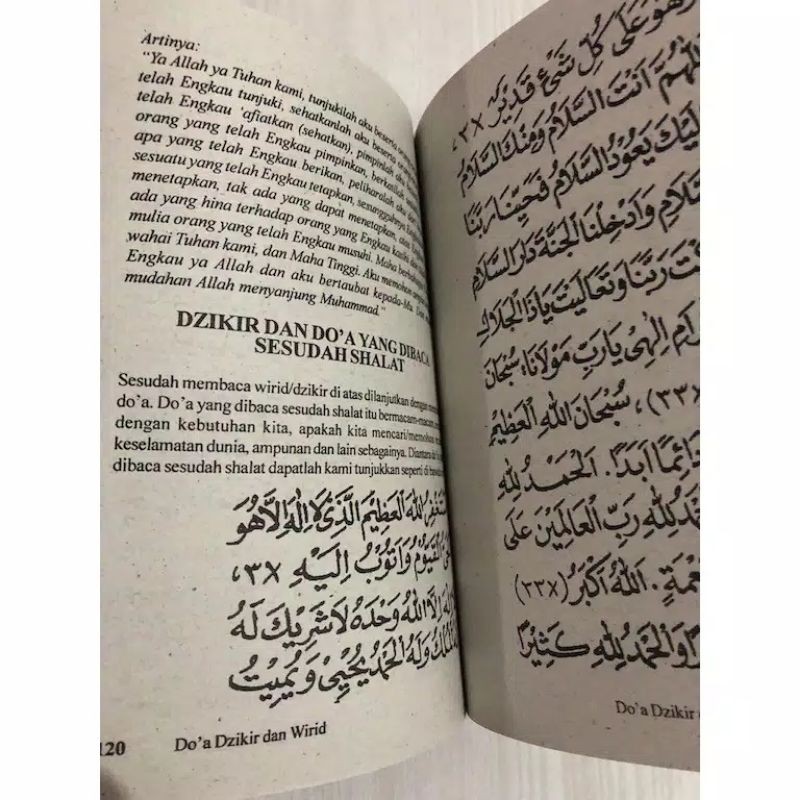 Artinya:
"Ya Allah ya Tuhan kami, tunjukilah aku beserta
telah Engkau tunjuki, sehatkanlah aku beserta
telah Engkau 'afiatkan (sehatkan), pimpinlah aku
orang yang telah Engkau pimpinkan, berkatilah
apa yang telah Engkau berikan, peliharalah aku
sesuatu yang telah Engkau tetapkan, sesungguhnya Engkau
menetapkan, tak ada yang dapat menetapkan, atas
ada yang hina terhadap orang yang Engkau
mulia orang yang telah Engkau musuhi. Maha
wahai Tuhan kami, dan Maha Tinggi. Aku memohon
Engkau ya Allah dan aku bertaubat kepada-Mu.
mudahan Allah menyanjung Muhammad."
DZIKIR DAN DO'A YANG DIBACA
SESUDAH SHALAT
Sesudah membaca wirid/dzikir di atas dilanjutkan dengan
do'a. Do'a yang dibaca sesudah shalat itu bermacam-macam
dengan kebutuhan kita, apakah kita mencari/memohon
keselamatan dunia, ampunan dan lain sebagainya. Diantara
dibaca sesudah shalat dapatlah kami tunjukkan seperti di
اللهَ الْعَظِيْمَ الَّذِيْ لَا اِلٰهَ اِلَّا هُوَ
الْقَيُّوْمُ وَاَتُوْبُ اِلَيْهِ ×٣،
اِلَّا اللهُ وَحْدَهُ لَا شَرِيْكَ لَهُ
الْمُلْكُ وَلَهُ الْحَمْدُ يُحْيِيْ وَيُمِيْتُ
120 Do'a Dzikir dan Wirid
وَهُوَ عَلٰى كُلِّ شَيْءٍ قَدِيْرٌ ×٣،
اَللّٰهُمَّ اَنْتَ السَّلَامُ وَمِنْكَ السَّلَامُ
يَعُوْدُ السَّلَامُ فَحَيِّنَا رَبَّنَا
وَاَدْخِلْنَا الْجَنَّةَ دَارَ السَّلَامِ
رَبَّنَا وَتَعَالَيْتَ يَاذَا الْجَلَالِ
اِلٰهِيْ يَارَبِّ مَوْلَانَا، سُبْحَانَ
(×٣٣)، سُبْحَانَ اللهِ الْعَظِيْمِ
دَائِمًا اَبَدًا. اَلْحَمْدُ لِلّٰهِ
لِلّٰهِ رَبِّ الْعَالَمِيْنَ عَلٰى
اَللهُ اَكْبَرُ (×٣٣)
وَالْحَمْدُ لِلّٰهِ كَثِيْرًا
Do'a Dzikir